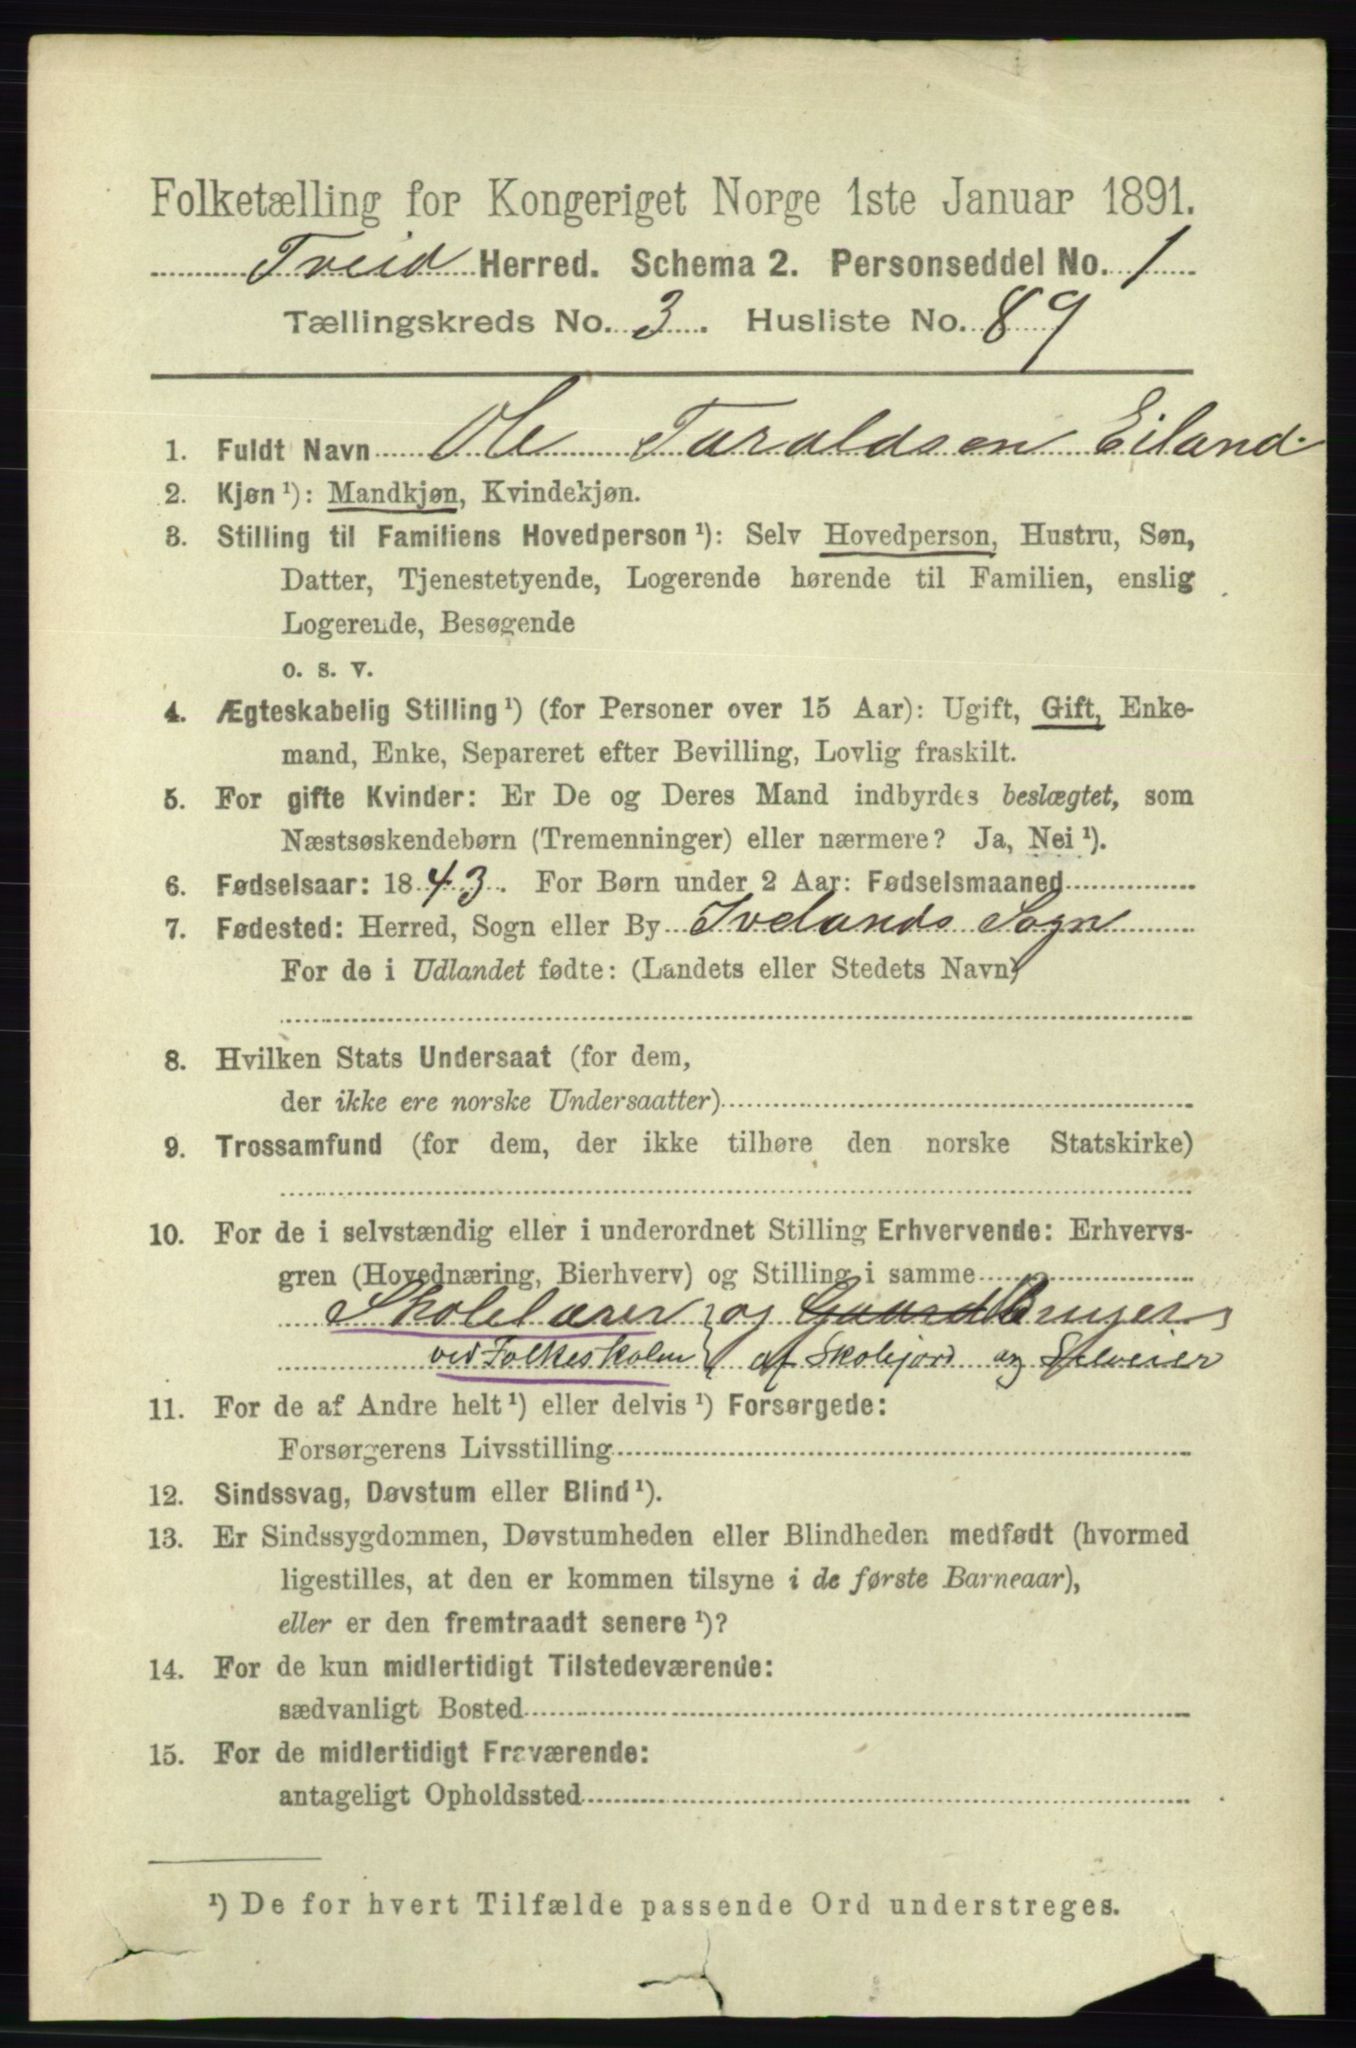 Folketælling for Kongeriget Norge 1ste Januar 1891.
Tveid Herred. Schema 2. Personseddel No. 1
Tællingskreds No. 3. Husliste No. 89
1. Fuldt Navn Ole Taraldsen Eiland.
2. Kjøn ¹): Mandkjøn, Kvindekjøn.
3. Stilling til Familiens Hovedperson ¹): Selv Hovedperson, Hustru, Søn,
Datter, Tjenestetyende, Logerende hørende til Familien, enslig
Logerende, Besøgende
o. s. v.
4. Ægteskabelig Stilling ¹) (for Personer over 15 Aar): Ugift, Gift, Enke-
mand, Enke, Separeret efter Bevilling, Lovlig fraskilt.
5. For gifte Kvinder: Er De og Deres Mand indbyrdes beslægtet, som
Næstsøskendebørn (Tremenninger) eller nærmere? Ja, Nei ¹).
6. Fødselsaar: 1843. For Børn under 2 Aar: Fødselsmaaned
7. Fødested: Herred, Sogn eller By Ivelands Sogn
For de i Udlandet fødte: (Landets eller Stedets Navn)
8. Hvilken Stats Undersaat (for dem,
der ikke ere norske Undersaatter)
9. Trossamfund (for dem, der ikke tilhøre den norske Statskirke)
10. For de i selvstændig eller i underordnet Stilling Erhvervende: Erhvervs-
gren (Hovednæring, Bierhverv) og Stilling i samme
Skolelærer og Gaardbruger
ved Folkeskolen af Skolejord og Selveier
11. For de af Andre helt ¹) eller delvis ¹) Forsørgede:
Forsørgerens Livsstilling
12. Sindssvag, Døvstum eller Blind ¹).
13. Er Sindssygdommen, Døvstumheden eller Blindheden medfødt (hvormed
ligestilles, at den er kommen tilsyne i de første Barneaar),
eller er den fremtraadt senere ¹)?
14. For de kun midlertidigt Tilstedeværende:
sædvanligt Bosted
15. For de midlertidigt Fraværende:
antageligt Opholdssted
¹) De for hvert Tilfælde passende Ord understreges.